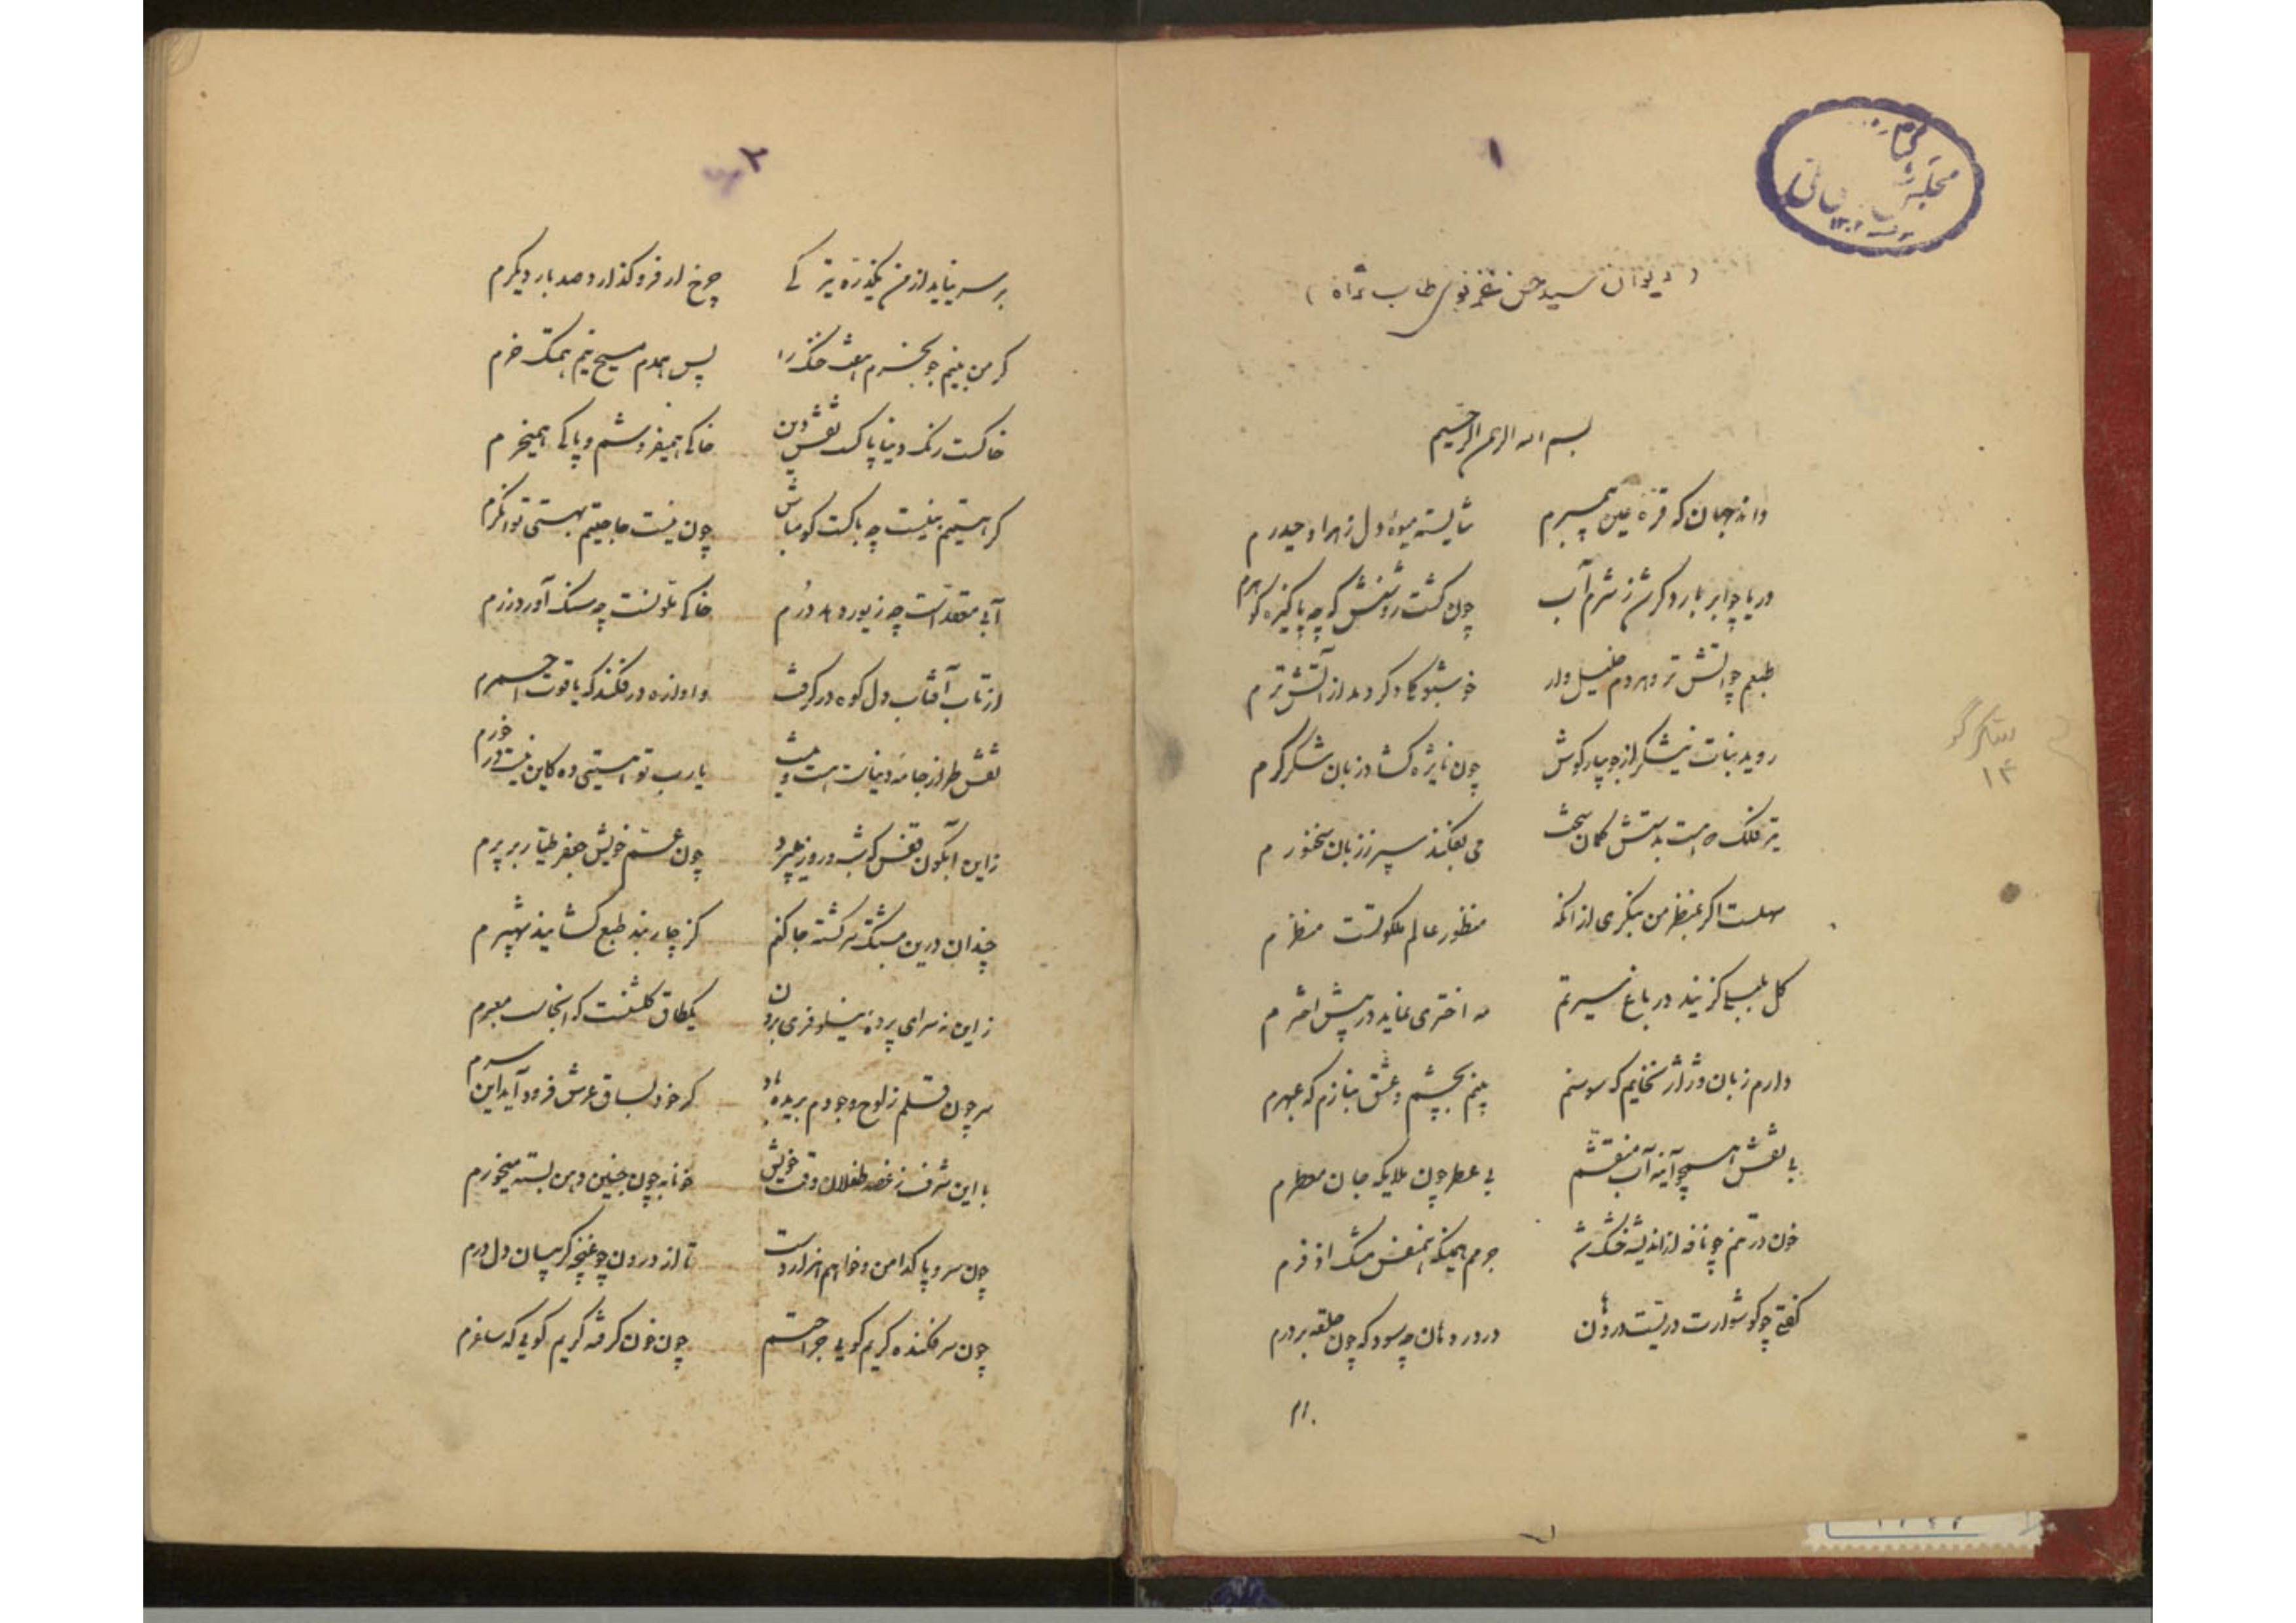 ۱
(دیوان سید حسن غزنوی طاب ثراه)
بسم الله الرحمن الرحیم
داند جهان که قرة عین پیمبرم شایسته میوهٔ دل زهرا و حیدرم
دریا چو ابر بارد کرش ز شرم آب چون کشت روشنش که چه پاکیزه کوهرم
طبعم چو آتش تر و هر دم خلیل وار خوشبو کلا دکر دمد از آتش ترم
روید نبات نیشکر از جویبار کوش چون نایژه کشاد زبان شکر کرم
تیر فلک که هست بدستش کمان سخت می بفکند سپر ز زبان سخنورم
سهلست اکر بمنظر من ننکری از انکه منظور عالم ملکوتست منظرم
کل بلبلی کزیند در باغ سیرتم مه اختری نماید در پیش اخترم
دارم زبان و ژاژ نخایم که سوسنم بینم بچشم و عشق نبازم که عبهرم
بی نقش همچو آینه آب منقشم بی عطر چون ملایکه جان معطرم
خون در تنم چو نافه ز اندیشه خشک شد جرمم همینکه همنفس مشک اذفرم
کفتی چو کوشوارت دریست در دهان در در دهان چه سود که چون حلقه بر درم
۲
بر سر نیاید از من یکذره تیر کی چرخ ار فرو کذارد صد بار دیکرم
کر من بنیم جو بخرم هفت خنک را پس همدم مسیح نیم همتک خرم
خاکست رنک دنیا پاکست نقش دین خاکی همیفروشم و پاکی همیخرم
کر هستیم نیست چه باکست کو مباش چون نیست حاجتیم بهستی توانکرم
آبی معقدست چه زیور دهد درم خاکی ملونست چه سنک آورد زرم
از تاب آفتاب دل کوه در کرفت و اوازه در فکند که یاقوت احمرم
نقش طراز جامهٔ دنیاست هست و نیست یارب تو هستیی ده کاین نیست در خورم
زاین آبکون قفس که شب و روز میپرد چون عم خویش جعفر طیار بر پرم
چندان درین مشبک سرکشته جا کنم کز چار بند طبع کشایند شهپرم
زاین نه سرای پردهٔ نیلوفری برون یکطاق کلشنست که انجاست معبرم
سر چون قلم ز لوح وجودم بریده باد کر خود بساق عرش فرود آید این سرم
با این شرف ز غصه طفلان وقت خویش خونابه چون جنین دهن بسته میخورم
چون سرو پاکدامن و خواهم هزار دست تا از درون چو غنچه کریبان دل درم
چون سر فکنده کریم کویی جراحتم چون خون کرفته کریم کویی که ساغرم